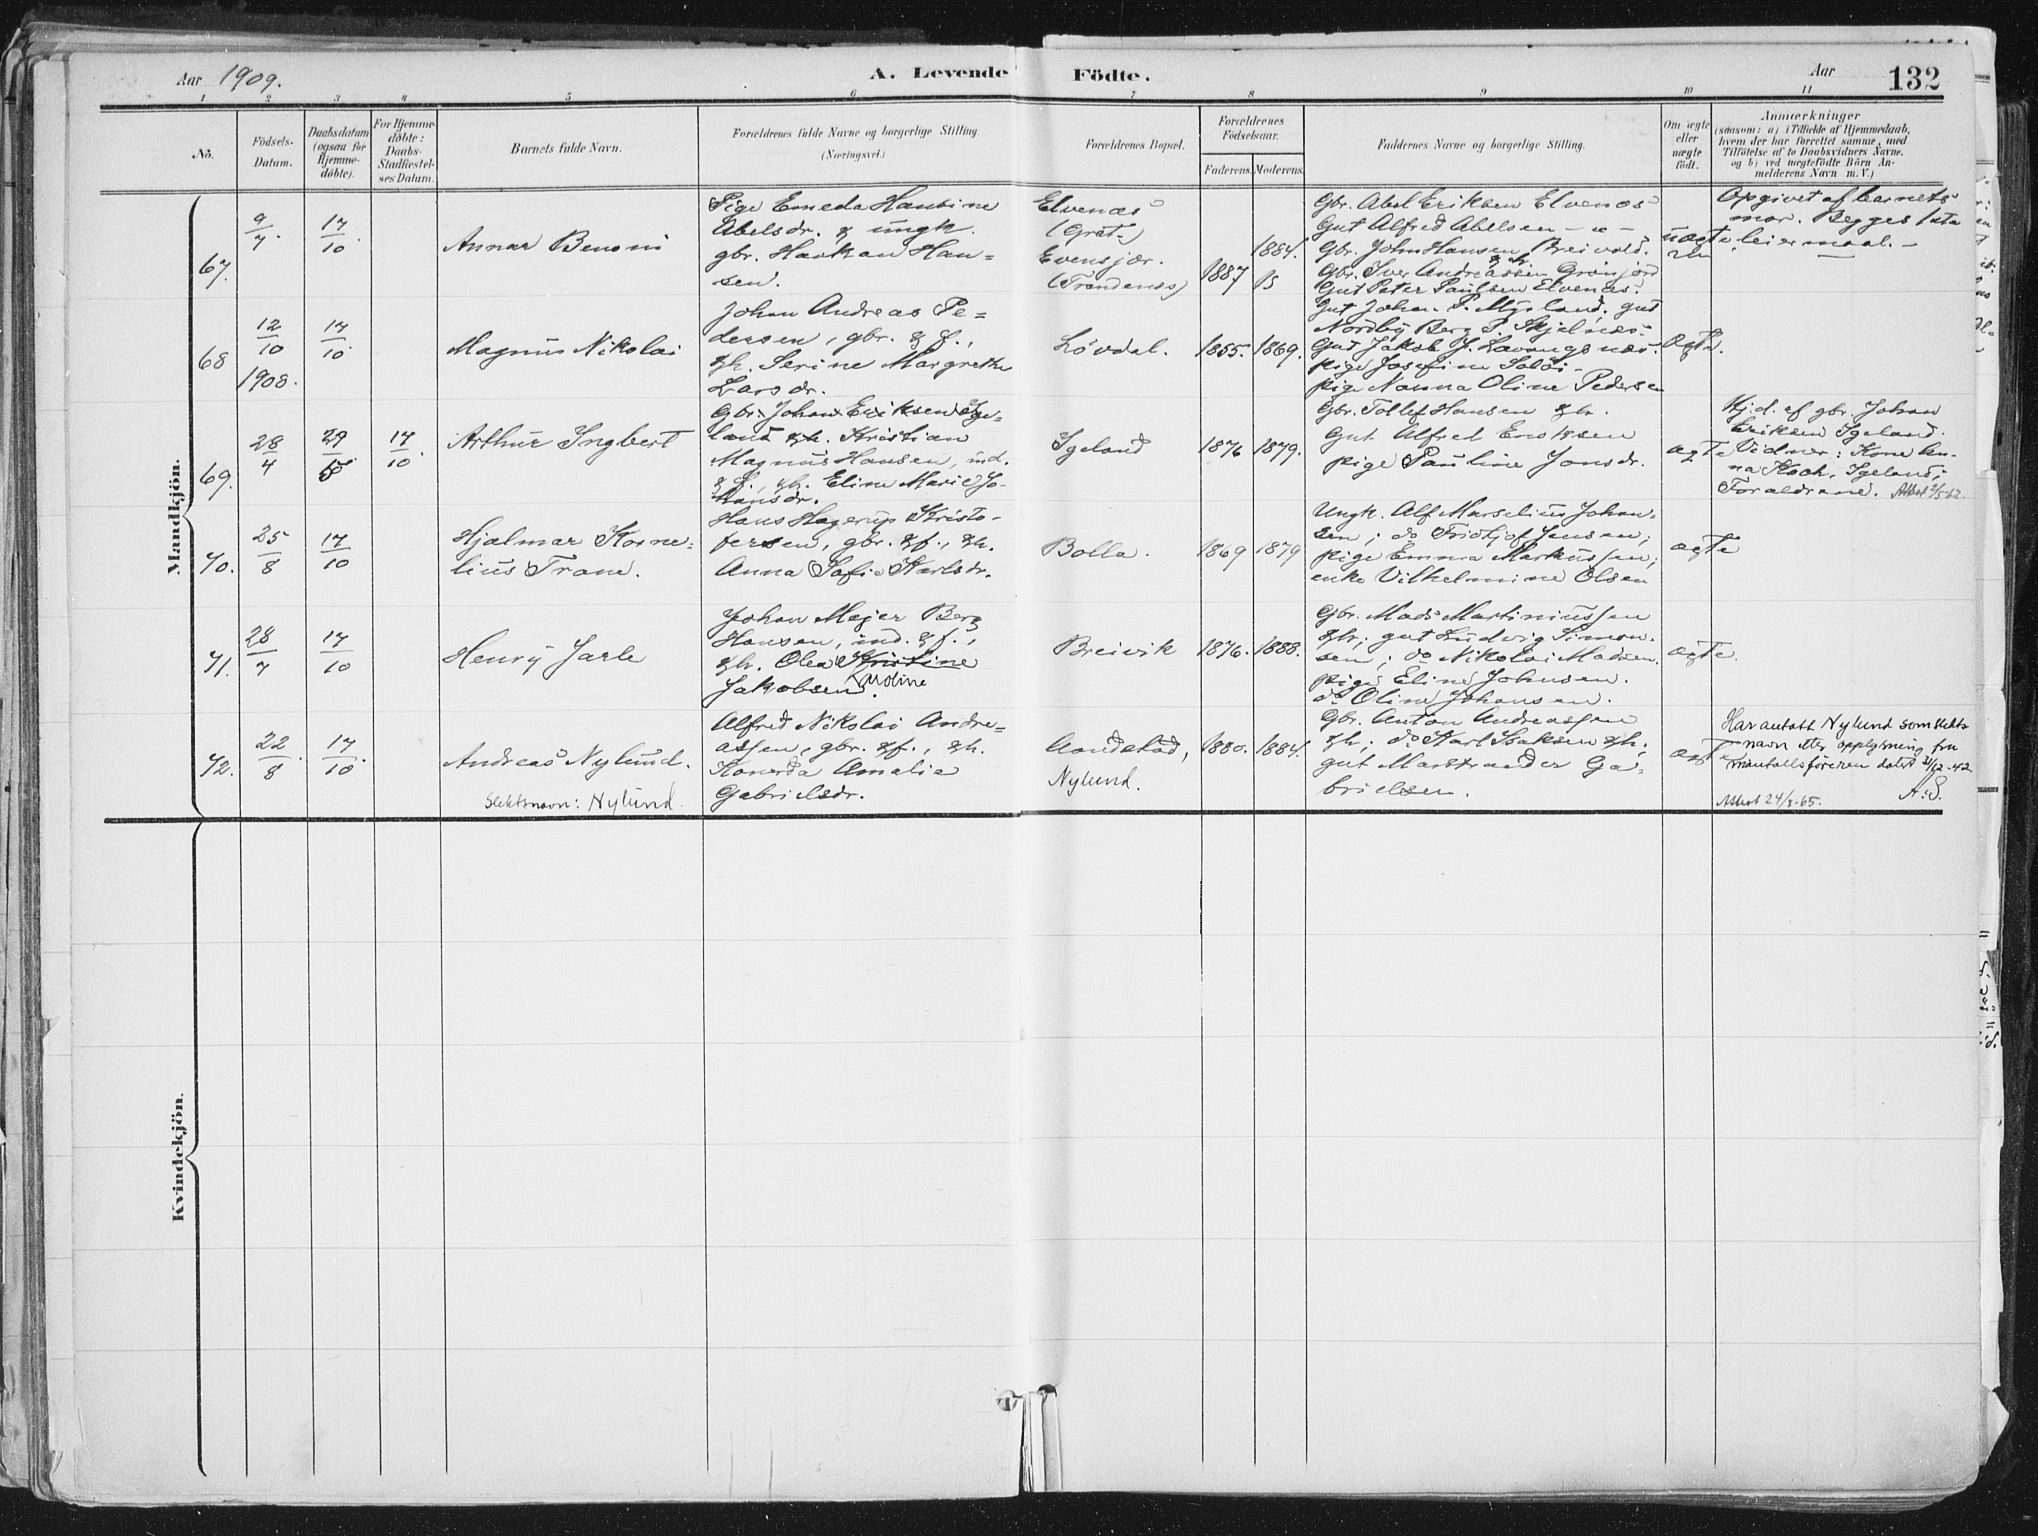 Aar 1909.
A. Levende Födte.
Aar
132
1 2 3 4 5 6 7 8 9 10 11
No.
Födsels-
Datum.
Daabsdatum
(ogsaa for
Hjemme-
döbte).
For Hjemme-
döbte:
Daabs-
Stadfæstel-
ses Datum.
Barnets fulde Navn.
Forældrenes fulde Navne og borgerlige Stilling.
(Næringsvei.)
Forældrenes Bopæl.
Forældrenes
Födselsaar.
Faderens. Moderens.
Faddernes Navne og borgerlige Stilling.
Om ægte
eller
uægte
födt.
Anmærkninger
(saasom: a) i Tilfælde af Hjemmedaab,
hvem der har forrettet samme, med
Tilföielse af to Daabsvidners Navne.
og b) ved uægtefödte Börn An-
melderens Navn m. V.)
Mandkjön.
67.
9/7.
17/10.
Annar Benoni
Pige Emeda Hansine
Abelsdr. & ungk.
gbr. Haakan Han-
sen.
Elvenæs
(Grat.)
Evensjær.
(Trondenæs)
1887
1884.
Gbr. Abel Eriksen Elvenæs
Gut Alfred Abelsen — " —
Gbr. John Hansen, Breivold.
Gbr. Iver Andreassen Grønjord
Gut Peter Paulsen Elvenæs.
uægte
Opgivet af barnets
mor. Begges 1ste
leiermaal. —
68
12/10
1908.
17/10.
Magnus Nikolai
Johan Andreas Pe-
dersen, gbr. & f.,
& h. Serine Margrethe
Larsdr.
Løvdal.
1855.
1869.
Gut Johan P. Mysland. gut
Nordby Berg P. Skjelnæs.
Gut Jakob J. Lavangsnæs.
pige Josefine
pige Nanna Oline Pedersen
Ægte.
69.
28/4
29/5
17/10.
Arthur Ingbert
Gbr. Johan Eriksen Ige-
land & h. Kristian
Magnus Hansen, ind.
& f., & h. Eline Marie Jo-
hansdr.
Igeland
1876
1879.
Gbr. Tollef Hansen & h.
Gut Alfred Eriksen
pige Pauline Jonsdr.
ægte
Hj.d. af gbr. Johan
Eriksen Igeland.
Vidner: Kone An-
na Koch, Igeland,
Foraldrene. Attest 2/5 62.
70.
25/8
17/10
Hjalmar Korne-
lius Trane.
Hans Hagerup Kristo-
fersen, gbr. & f., & h.
Anna Sofie Karlsdr.
Bolla.
1869
1879
Ungk. Alf Marselius Johan-
sen; do Fridtjof Jensen;
pige Emma Markussen,
enke Vilhelmine Olsen
ægte
71.
28/7
17/10
Henry Jarle
Johan Mejer Berg
Hansen, ind. & f.,
& h. Olea Kristine
Jakobsen. Karoline
Breivik
1876.
1888.
Gbr. Mads Martinussen
& h; gut Ludvig Simon-
sen; do Nikolai Madsen.
pige Eline Johnsen.
do Oline Johansen.
ægte.
72.
22/8
17/10.
Andreas Nylund.
Slektsnavn: Nylund.
Alfred Nikolai Andre-
assen, gbr. & f., & h.
Konerda Amalie
Gabrielsdr.
Aandstad,
Nylund.
1880.
1884.
Gbr. Anton Andreassen
& h; do Karl Isaksen & h.
gut Marstrander Ga-
brielsen.
ægte
Har antatt Nylund som slekts-
navn etter opplysning fra
mantallsføreren datert 21/12-42
A.S.
Attest 24/3-65.
Kvindekjön.